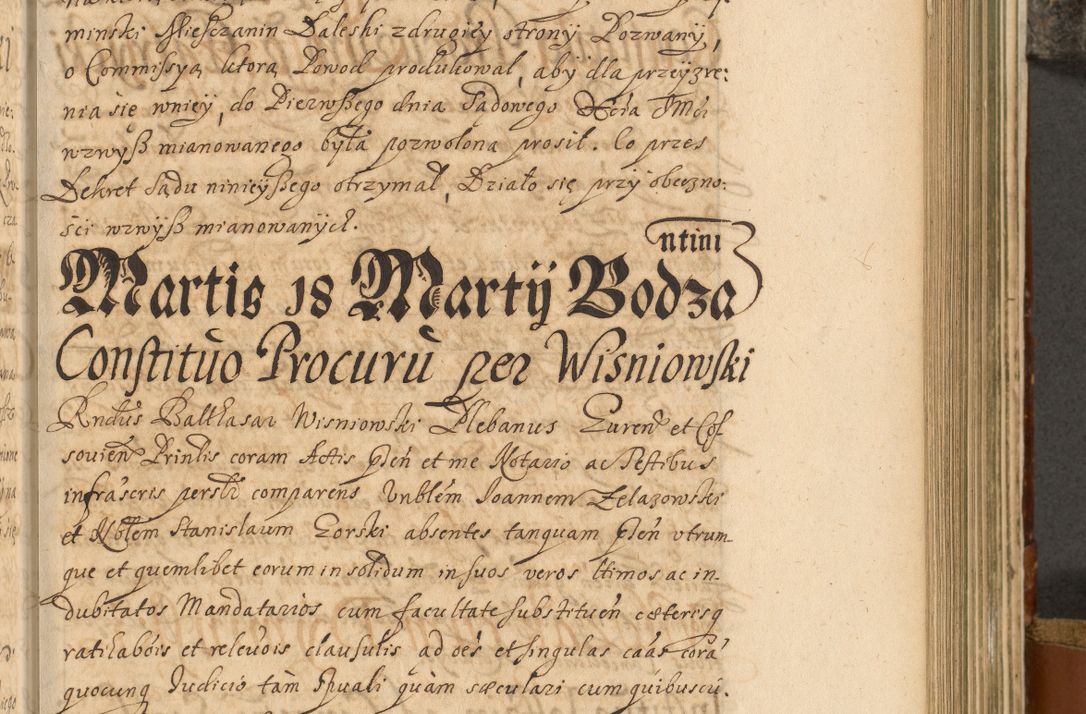 minski Mieszczanin Daleski z drugiey strony Pozwany,
o Commissyą ktorą Powod produkował, aby dla przeyzre:
nia się wniey, do Pierwszego dnia Sądowego Xcia Jmci
wzwysz mianowanego była pozwolona prosił. Co przes
Dekret Sądu ninieyszego otrzymał, Działo się przy obeczno:
ści wzwysz mianowanych.
Martis 18 Martij Bodzantini
Constituo Procurū per Wisniowski
Rndus Balthasar Wisniowski Plebanus Gureñ et Cos
sovieñ Prinlis coram Actis Pñ et me Notario ac Testibus
infrascris perslr comparens Vnblem Joannem Zelazowski
et Nblem Stanislaum Gorski absentes tanquam Pñ vtrum
que et quemlibet eorum in solidum in suos veros ltimos ac in
dubitatos Mandatarios cum facultate substitueñ cæterisq
ratihabõis et relevõis clausulis ad oēs et singulas caās corā
quocunq Judicio tàm Spuali quàm sæculari cum quibuscū.